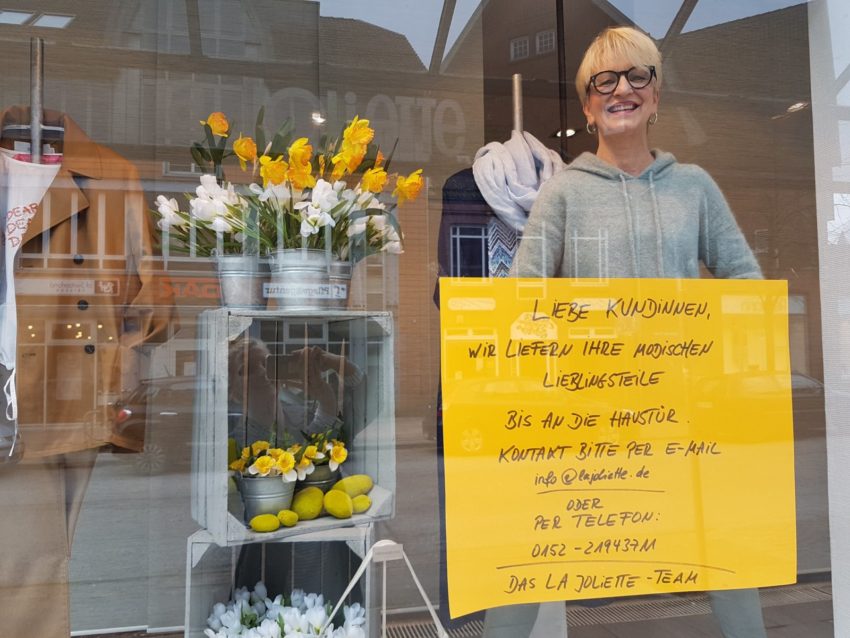 LIEBE KUNDINNEN,
WIR LIEFERN IHRE MODISCHEN
LIEBLINGSTEILE
BIS AN DIE HAUSTÜR.
KONTAKT BITTE PER E-MAIL
info@lajoliette.de
ODER
PER TELEFON:
0152-21943711
DAS LA JOLIETTE-TEAM